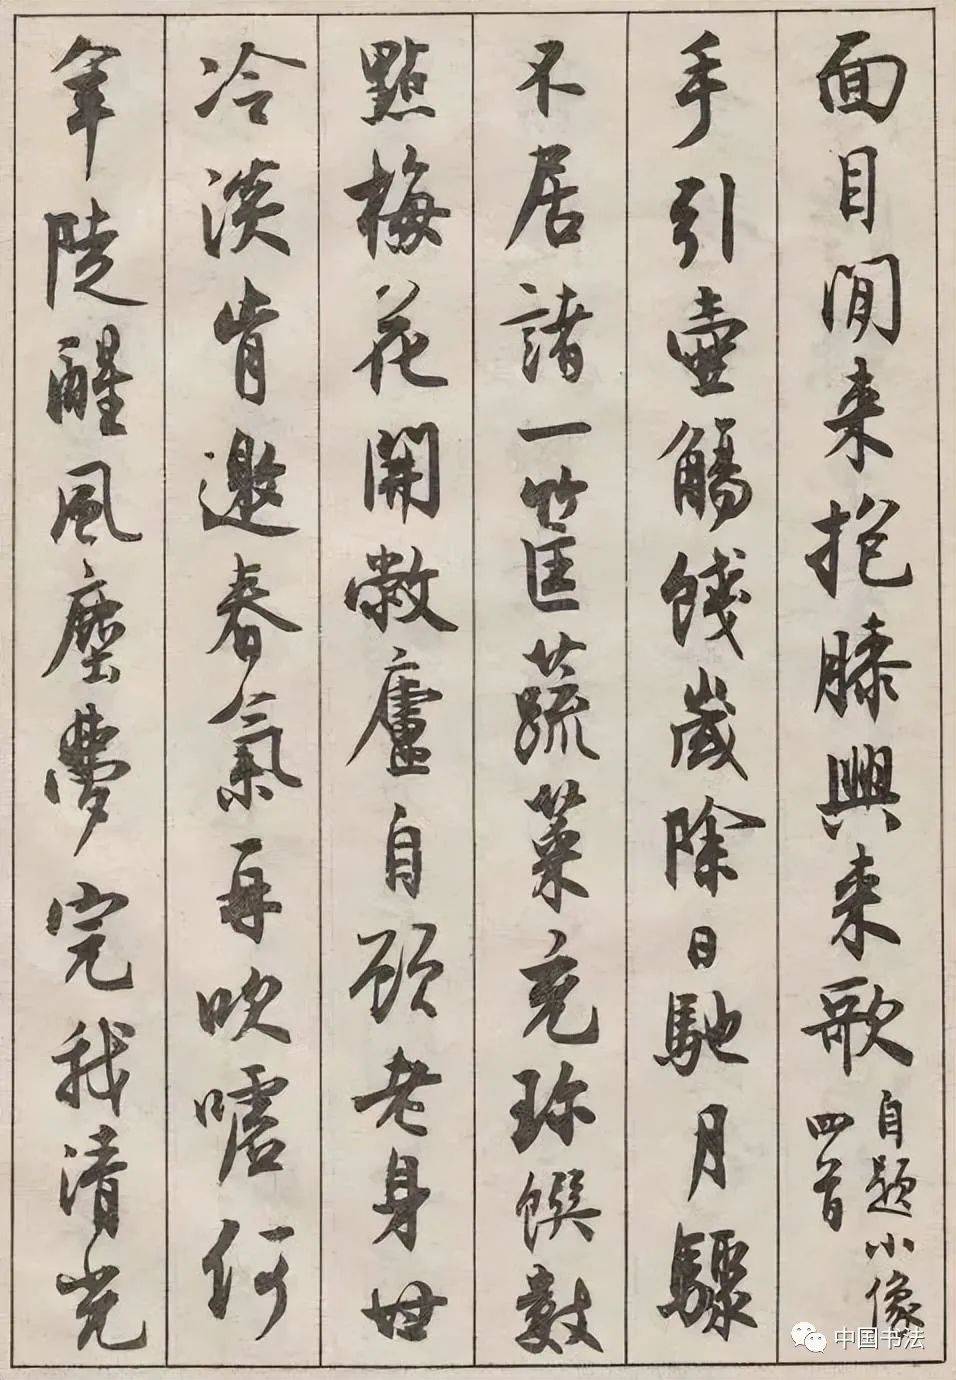 面目閒来抱膝興来歌
自題小像
四首
手引壺觴餞歲除日馳月驟
不居諸一筐蔬菜充珍饌數
點梅花開敝廬自顧老身世
冷淡肯邀春氣再吹噓何
年陡醒風塵夢完我清光
中国书法